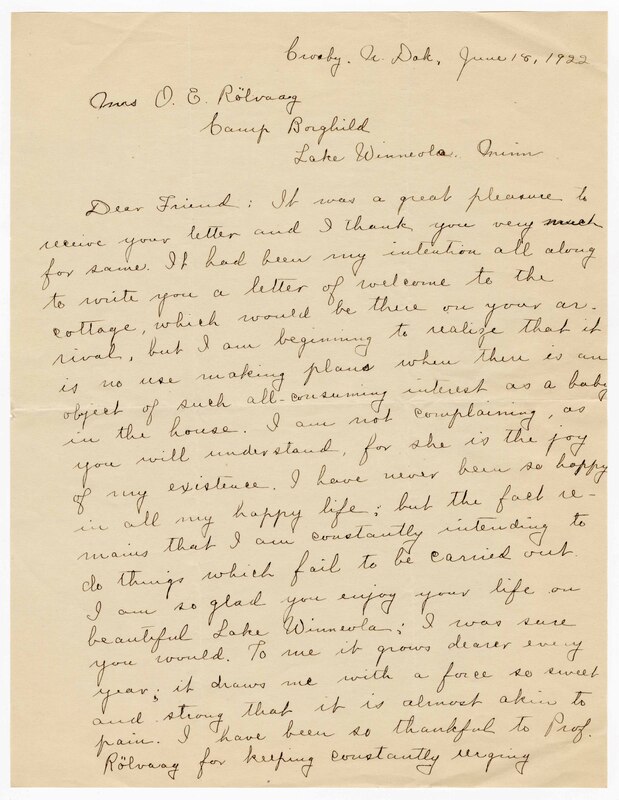 Crosby, N. Dak, June 18, 1922
Mrs O. E. Rölvaag
Camp Borghild
Lake Winneola. Minn
Dear Friend: It was a great pleasure to
receive your letter and I thank you very much
for same. It had been my intention all along
to write you a letter of welcome to the
cottage, which would be there on your ar-
rival, but I am beginning to realize that it
is no use making plans when there is an
object of such all-consuming interest as a baby
in the house. I am not complaining, as
you will understand, for she is the joy
of my existence. I have never been so happy
in all my happy life; but the fact re-
mains that I am constantly intending to
do things which fail to be carried out.
I am so glad you enjoy your life on
beautiful Lake Winneola; I was sure
you would. To me it grows dearer every
year; it draws me with a force so sweet
and strong that it is almost akin to
pain. I have been so thankful to Prof.
Rölvaag for keeping constantly urging